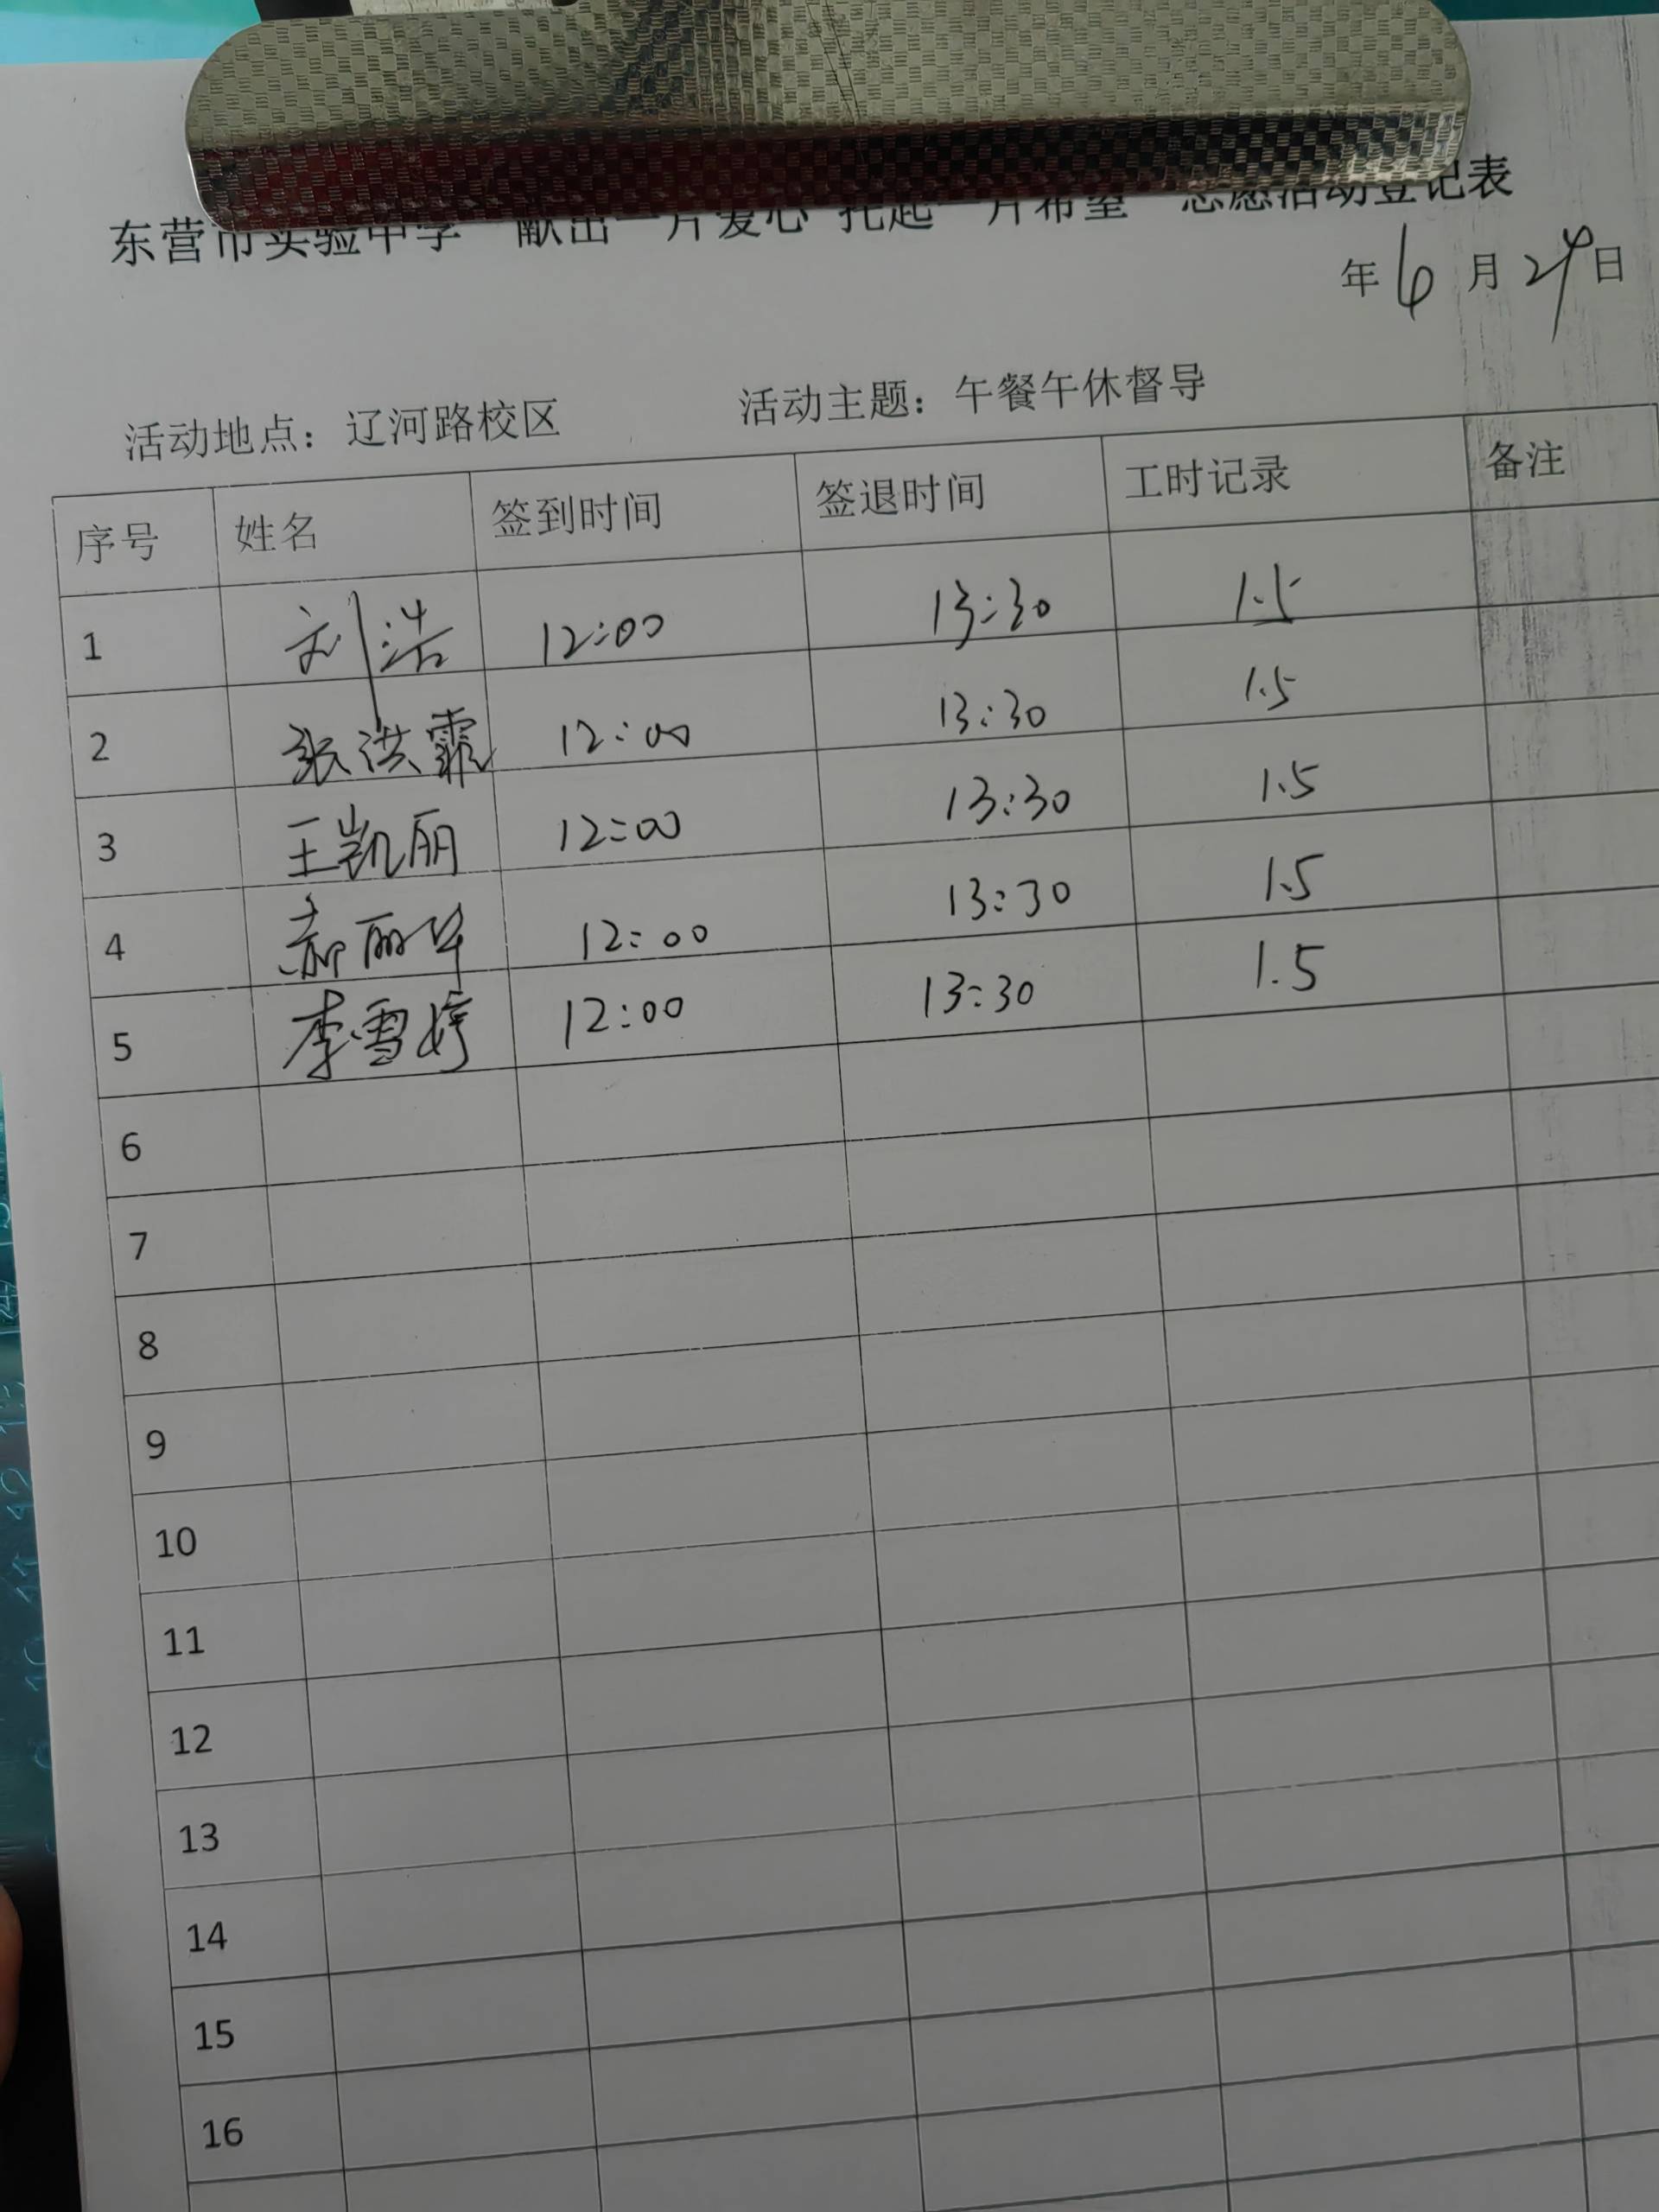 东营市实验中学 献出一片爱心 托起一片希望 志愿活动登记表
年 6 月 29 日
活动地点：辽河路校区 活动主题：午餐午休督导
序号 姓名 签到时间 签退时间 工时记录 备注
1 刘浩 12:00 13:30 1.5
2 张洪霏 12:00 13:30 1.5
3 王凯丽 12:00 13:30 1.5
4 郝丽华 12:00 13:30 1.5
5 李雪婷 12:00 13:30 1.5
6
7
8
9
10
11
12
13
14
15
16